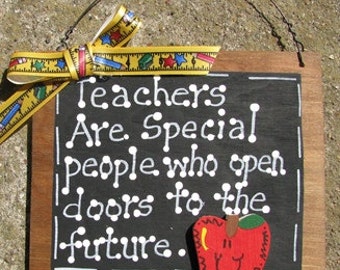 Teachers
Are Special
people who open
doors to the
future.